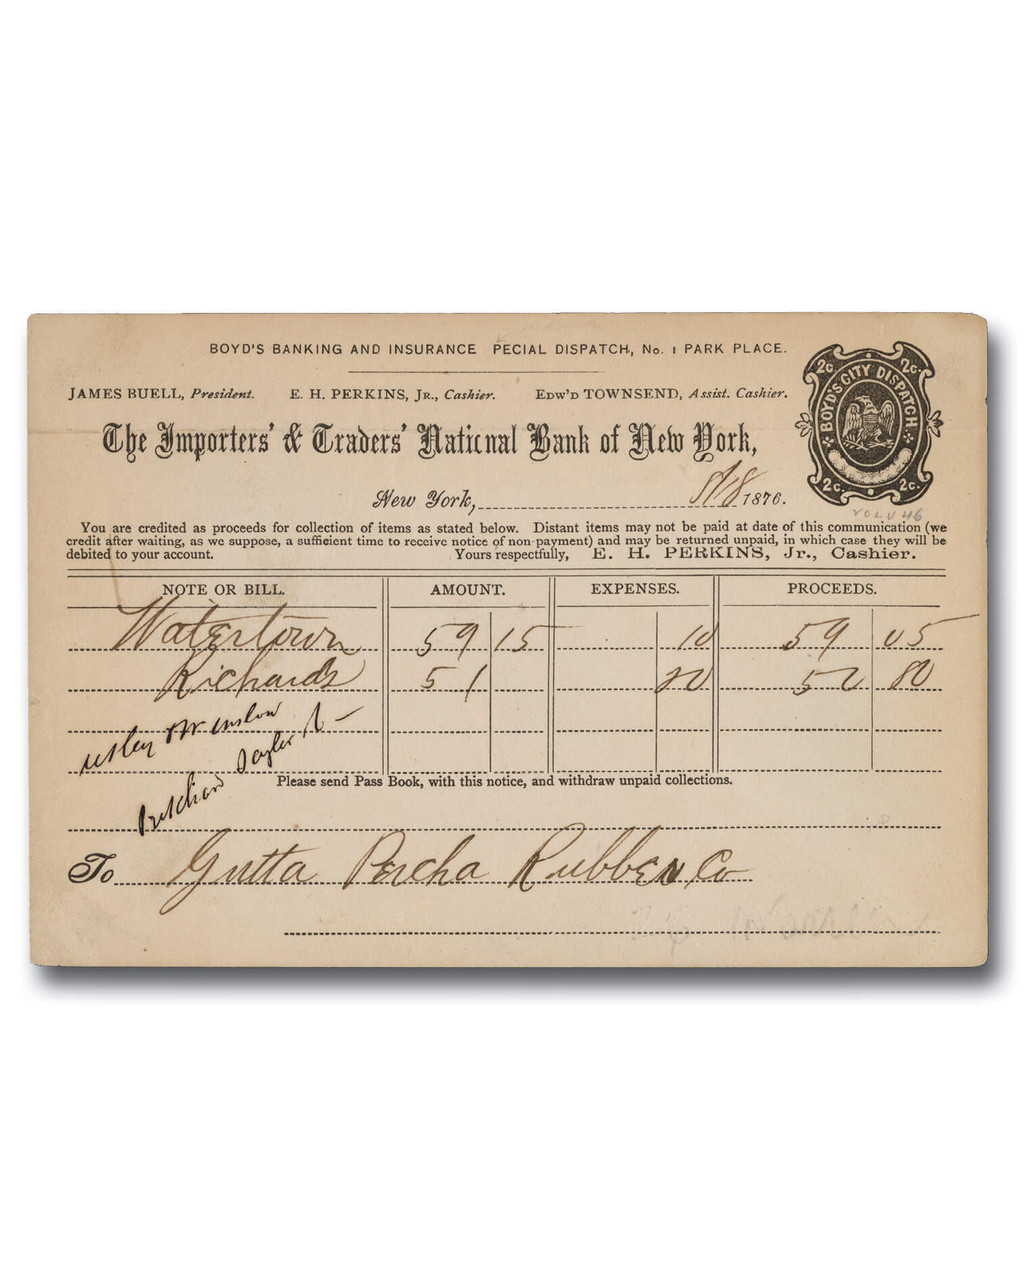 BOYD'S BANKING AND INSURANCE PECIAL DISPATCH, No. 1 PARK PLACE.
JAMES BUELL, President. E. H. PERKINS, JR., Cashier. EDW'D TOWNSEND, Assist. Cashier.
2c. 2c.
BOYD'S CITY DISPATCH
2c. 2c.
The Importers' & Traders' Naticnal Bank of New York,
New York, 1876.
VOLU46
You are credited as proceeds for collection of items as stated below. Distant items may not be paid at date of this communication (we
credit after waiting, as we suppose, a sufficient time to receive notice of non-payment) and may be returned unpaid, in which case they will be
debited to your account. Yours respectfully, E. H. PERKINS, Jr., Cashier.
NOTE OR BILL. AMOUNT. EXPENSES. PROCEEDS.
Watertown 59 15 10 59 05
Richards 51 20 50 80
Please send Pass Book, with this notice, and withdraw unpaid collections.
To Gutta Percha Rubber Co